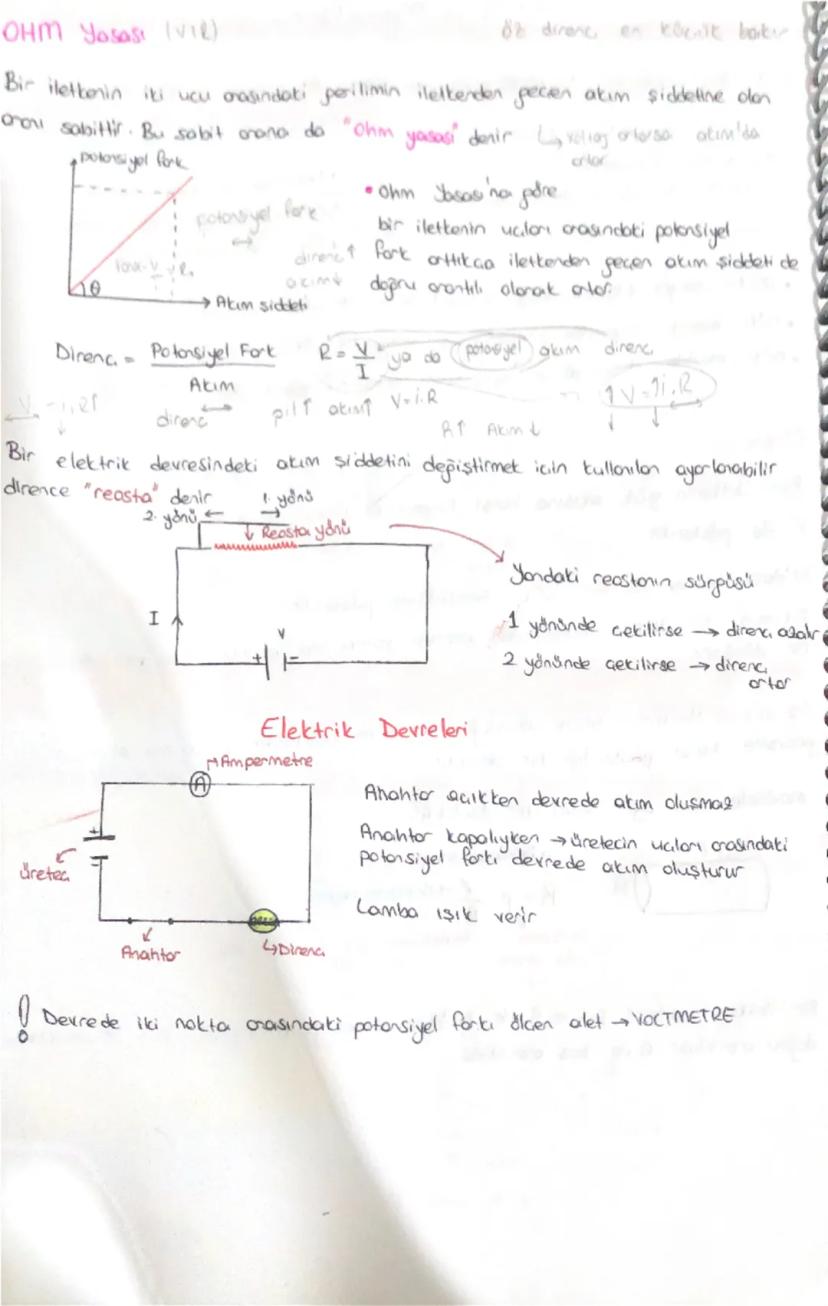 OHM Yasası (VIR)
öz direnç en küçük bakır
Bir iletkenin iki ucu arasındaki gerilimin iletkenden geçen akım şiddetine olan
oranı sabittir. Bu sabit orana da "Ohm yasası" denir ↳ voltaj artarsa akım'da
artar
potansiyel fark
potansiyel fark
↔
direnç↑
akım↓
θ
→ Akım şiddeti
• Ohm Yasası'na göre
bir iletkenin uçları arasındaki potansiyel
fark arttıkça iletkenden geçen akım şiddeti de
doğru orantılı olarak artar.
Direnç = Potansiyel Fark
Akım
R = V
I
ya da potasiyel akım direnç
V=i.R
↑V=↑i.R
direnç
pil↑ akım↑
R↑ Akım↓
Bir elektrik devresindeki akım şiddetini değiştirmek için kullanılan ayarlanabilir
dirence "reosta" denir
1. yönü →
2. yönü ←
↓ Reosta yönü
I
V
+ -
Yandaki reostanın sürgüsü
1 yönünde çekilirse → direnç azalır
2 yönünde çekilirse → direnç
artar
Elektrik Devreleri
→Ampermetre
A
+
-
üreteç
Anahtar
↳Direnç
Anahtar açıkken devrede akım oluşmaz
Anahtar kapalıyken → üretecin uçları arasındaki
potansiyel farkı devrede akım oluşturur
Lamba ışık verir
! Devrede iki nokta arasındaki potansiyel farkı ölçen alet → VOLTMETRE